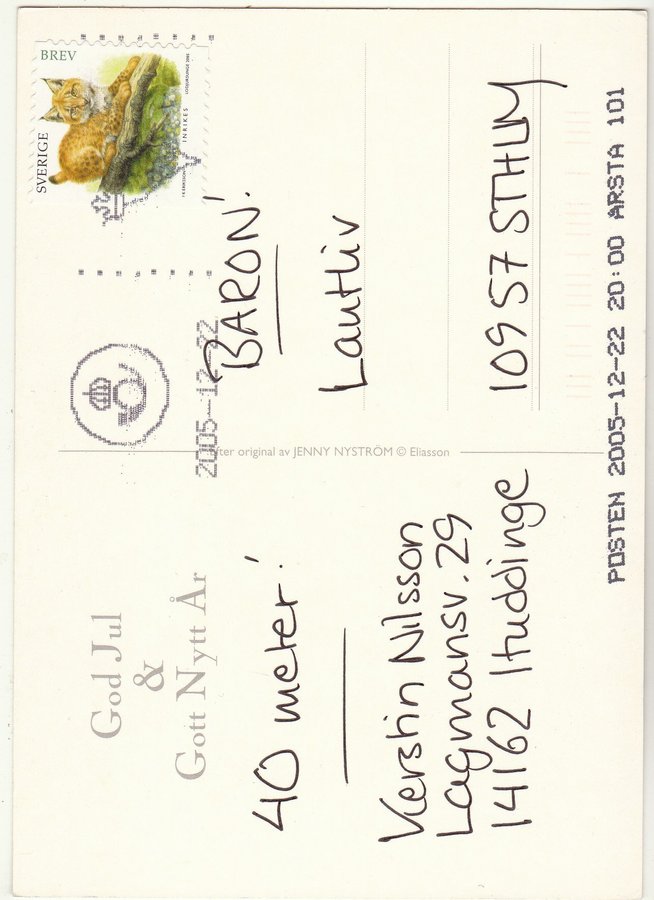 God Jul
&
Gott Nytt År
40 meter!
Kerstin Nilsson
Lagmansv. 29
14162 Huddinge
After original av JENNY NYSTRÖM © Eliasson
BREV
SVERIGE
INRIKES
LODJURSUNGE 2005
2005-12-22
"BARON".
Lantliv
109 57 STHLM
POSTEN 2005-12-22 20:00 ARSTA 101